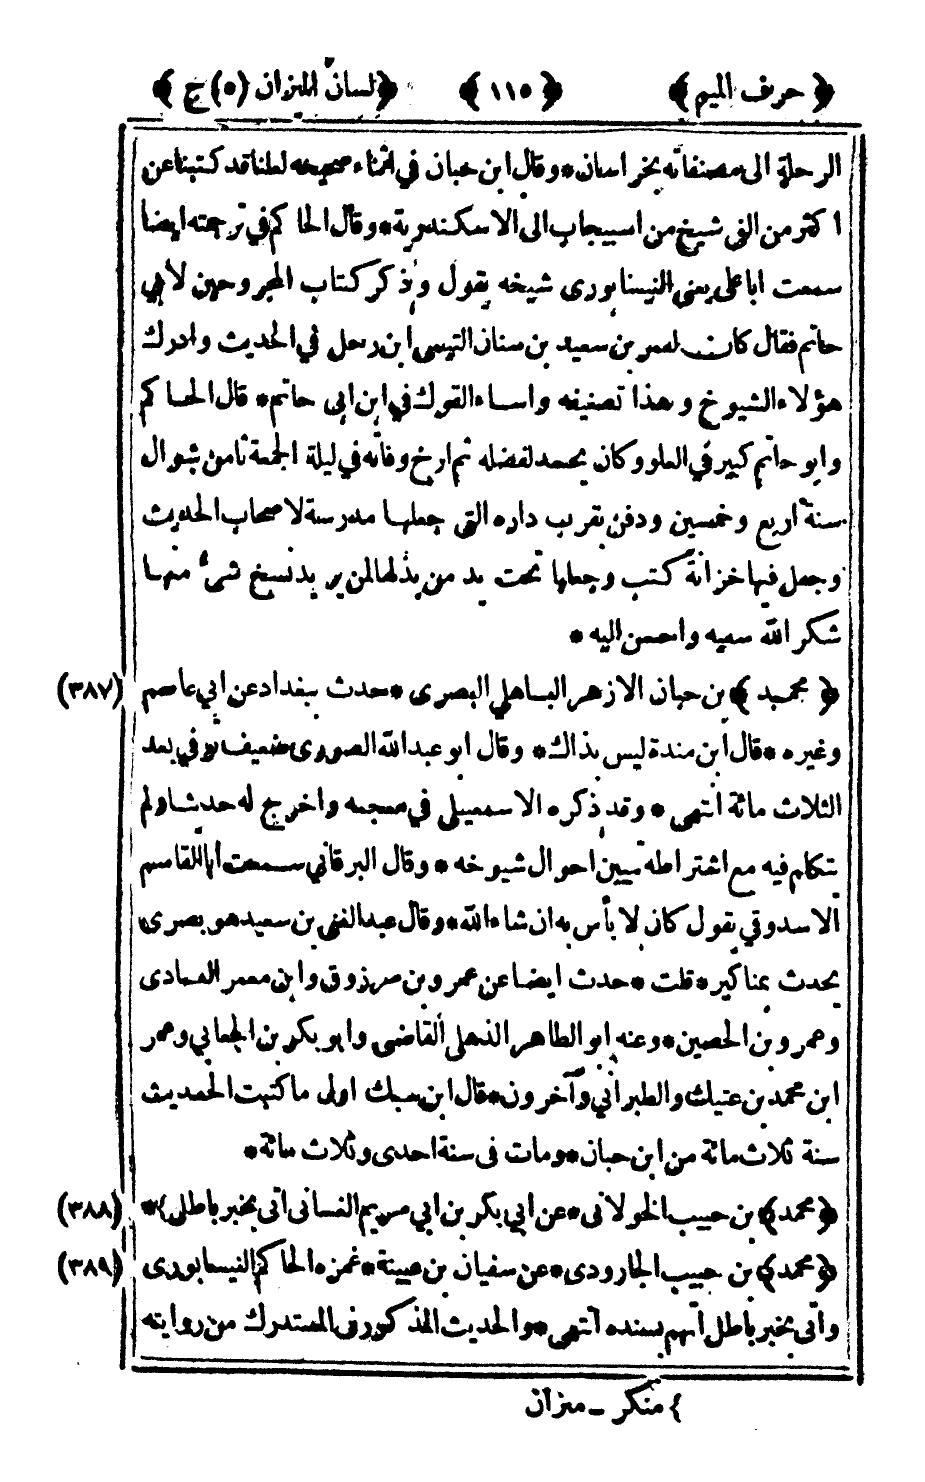 ﴿ حرف الميم ﴾ ﴿ ١١٥ ﴾ ﴿ لسان الميزان (٥) ج ﴾
الرحلة الى مصنفاته بخراسان * وقال ابن حبان في اثناء صحيحه لعلنا قد كتبنا عن
اكثر من الفى شيخ من اسبيجاب الى الاسكندرية * وقال الحاكم في ترجمته ايضا
سمعت ابا على يعنى النيسابورى شيخه يقول وذكر كتاب المجروحين لأبي
حاتم فقال كان لعمر بن سعيد بن سنان التيسى ابن رحل في الحديث وادرك
هؤلاء الشيوخ وهذا تصنيفه واساء القول في ابن ابى حاتم * قال الحاكم
وابو حاتم كبير في العلو وكان يحسد لفضله ثم ارخ وفاته في ليلة الجمعة ثامن شوال
سنة اربع وخمسين ودفن بقرب داره التى جعلها مدرسة لاصحاب الحديث
وجعل فيها خزانة كتب وجعلها تحت يد من يذلها لمن يريد نسخ شىء منها
شكر الله سعيه واحسن اليه *
(٣٨٧) ﴿ محمد ﴾ بن حبان الازهر الباهلي البصرى * حدث ببغداد عن ابي عاصم
وغيره * قال ابن مندة ليس بذاك * وقال ابو عبد الله الصورى ضعيف توفي بعد
الثلاث مائة انتهى * وقد ذكره الاسمعيلى في معجمه واخرج له حديثا ولم
يتكلم فيه مع اشتراطه تبيين احوال شيوخه * وقال البرقاني سمعت ابا القاسم
الاسدوقي يقول كان لا بأس به ان شاء الله * وقال عبد الغنى بن سعيد هو بصرى
يحدث بمناكير * قلت * حدث ايضا عن عمرو بن مرزوق وابن معمر العبادى
وعمرو بن الحصين * وعنه ابو الطاهر الذهلى القاضى وابو بكر بن الجعابي وعمر
ابن محمد بن عتيك والطبراني وآخرون * قال ابن سبك اولى ما كتبت الحديث
سنة ثلاث مائة من ابن حبان * ومات فى سنة احدى وثلاث مائة *
(٣٨٨) ﴿ محمد ﴾ بن حبيب الخولانى * عن ابي بكر بن ابي مريم الغسانى اتى بخبر باطل } *
(٣٨٩) ﴿ محمد ﴾ بن حبيب الجارودى * عن سفيان بن عيينة * غمزه الحاكم النيسابورى
واتى بخبر باطل اتهم بسنده انتهى * والحديث المذكور فى المستدرك من روايته
} منكر ـ ميزان